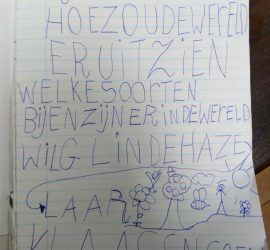 HOEZOUDEWERELD
ERUITZIEN
WELKESOORTEN
BIJENZIJNERINDEWERELD
WILGLINDEHAZE
LAAR